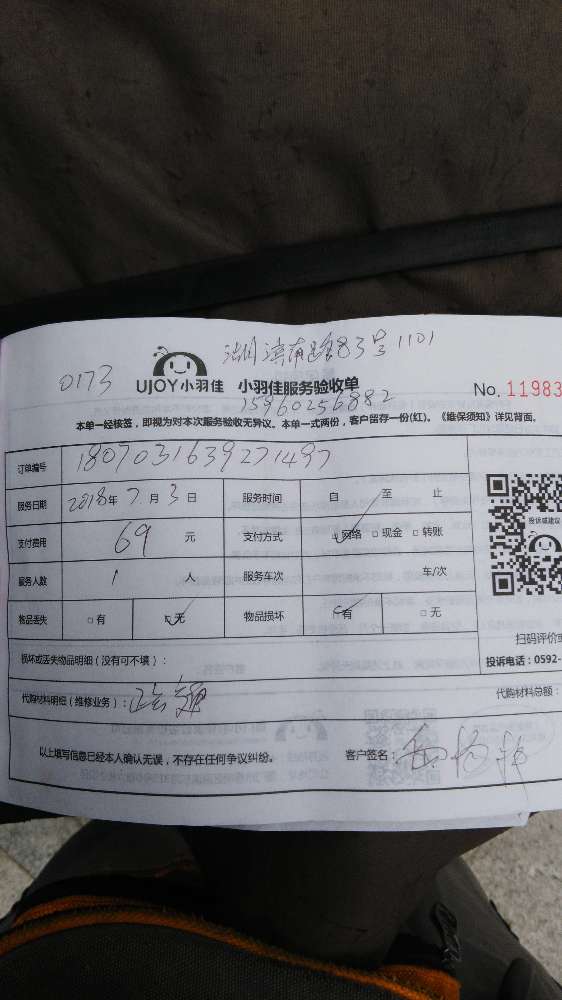 滨南路83号1101
0173 UJOY小羽佳 小羽佳服务验收单 No. 11983
15960256882
本单一经核签,即视为对本次服务验收无异议。本单一式两份,客户留存一份(红)。《维保须知》详见背面。
订单编号 1807031639271497
服务日期 2018年7月3日 服务时间 自 至 止
支付费用 69 元 支付方式 网络 现金 转账
服务人数 1 人 服务车次 车/次
物品丢失 有 无 物品损坏 有 无
投诉或建议
扫码评价或
投诉电话:0592-
损坏或丢失物品明细(没有可不填):
代购材料明细(维修业务): 代购材料总额:
以上填写信息已经本人确认无误,不存在任何争议纠纷。 客户签名: